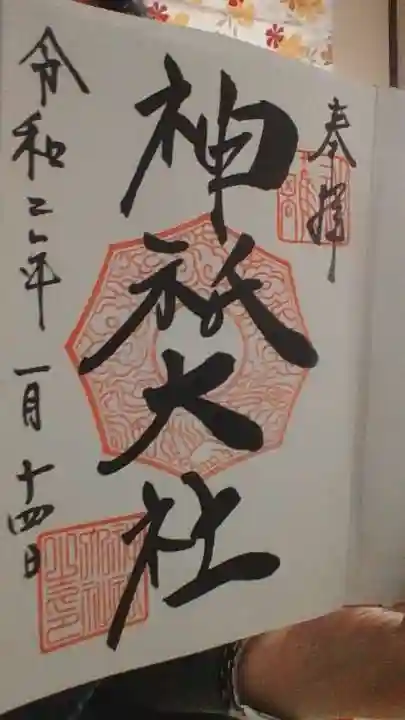 奉拝
神祇大社
令和二年一月十四日